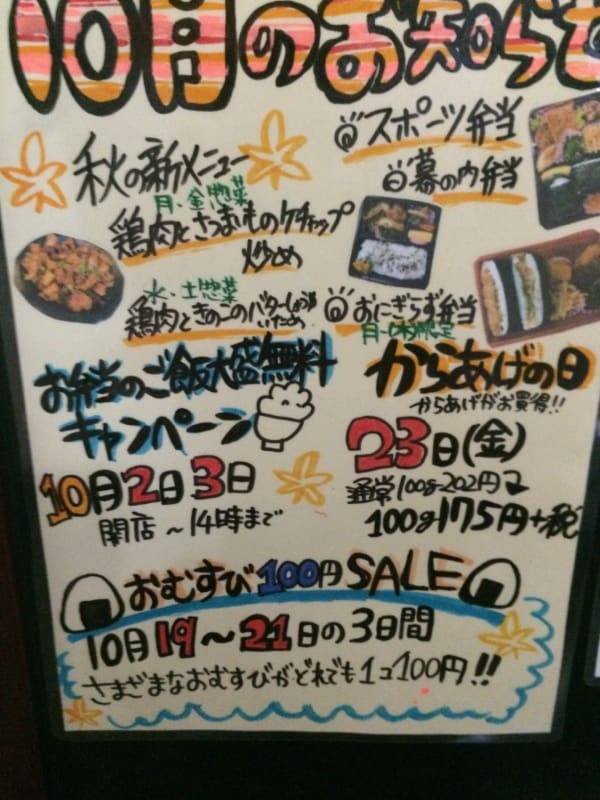 10月のお知らせ
秋の新メニュー
月・金惣菜
鶏肉とさつまいものケチャップ
炒め
水・土惣菜
鶏肉ときのこのバターしょうゆ
いため
スポーツ弁当
幕の内弁当
おにぎらず弁当
お弁当のご飯大盛無料
キャンペーン
10月2日3日
開店~14時まで
からあげの日
からあげがお買得!!
23日(金)
通常100g202円
100g175円+税
おむすび100円SALE
10月19~21日の3日間
さまざまなおむすびがどれでも1コ100円!!